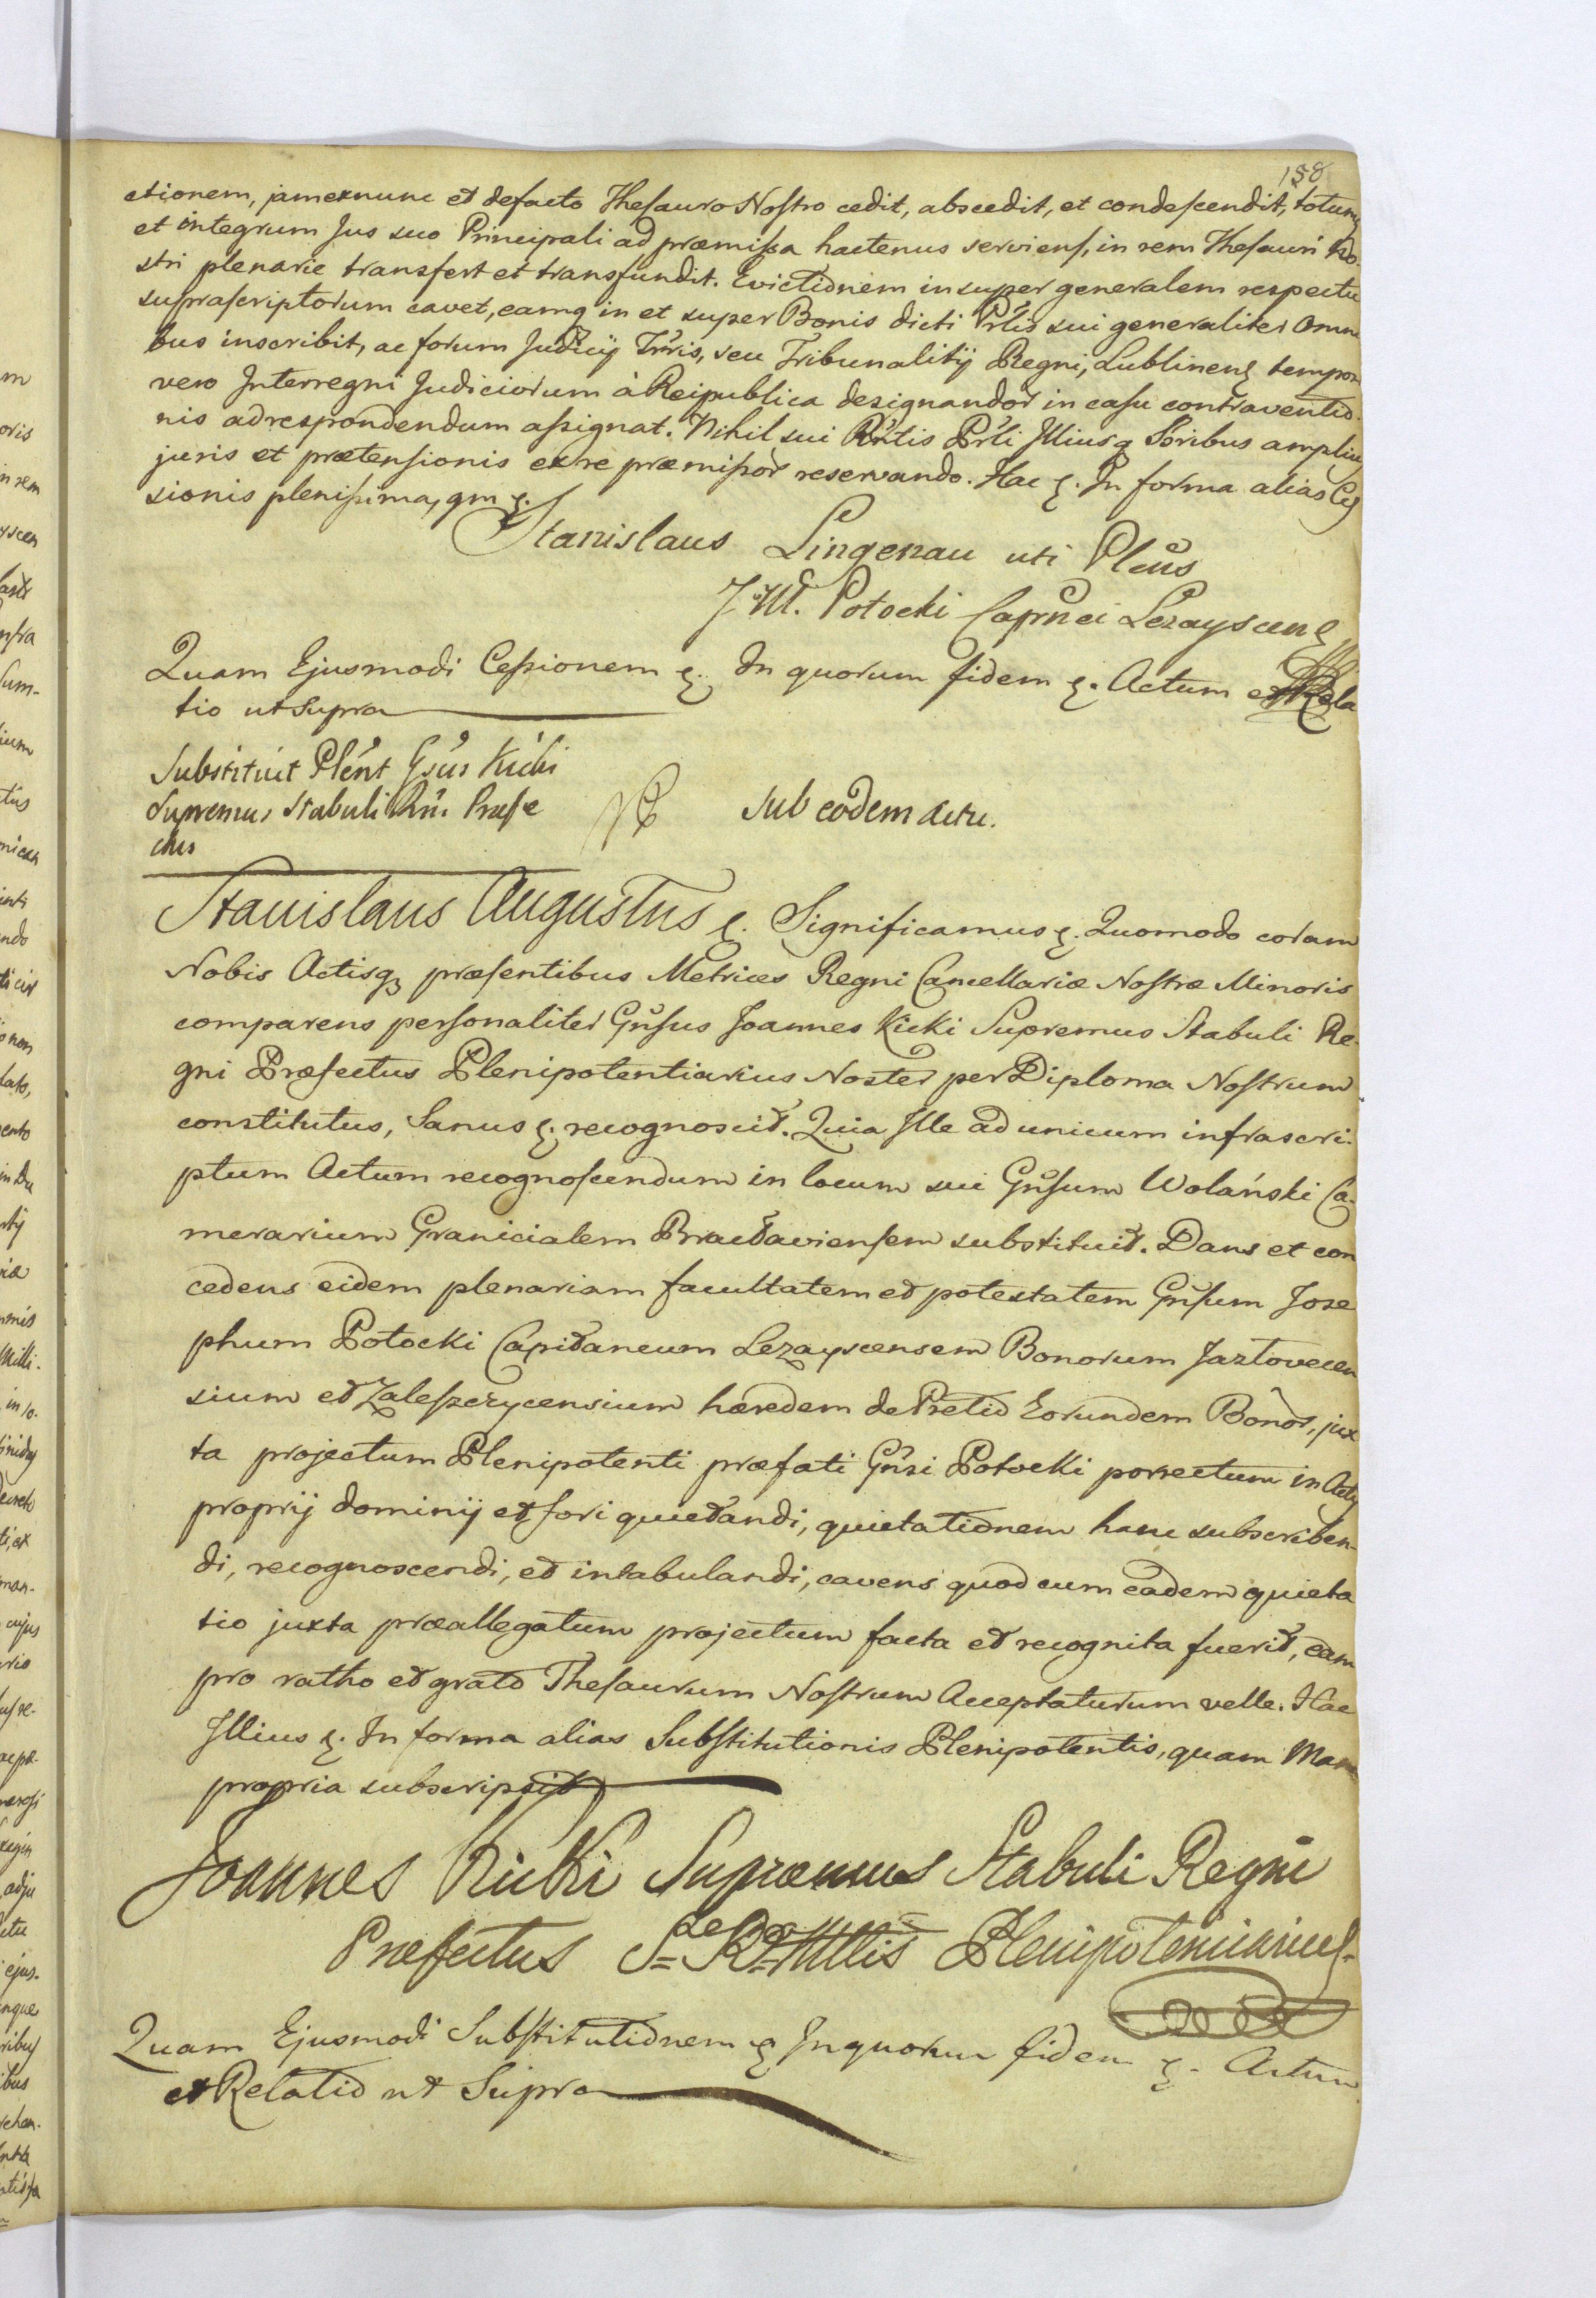 158
ctionem, jamexnunc et defacto Thesauro Nostro cedit, abscedit, et condescendit, totumq
et integrum Jus suo Principali ad præmissa hactenus serviens, in rem Thesauri No-
stri plenarie transfert et transfundit. Evictionem insuper generalem respectu
suprascriptorum cavet, eamq in et super Bonis dicti Prlis sui generaliter Omni
bus inscribit, ac forum Judicij Trris, seu Tribunalitij Regni, Lublinens tempore
vero Interregni Judiciorum à Reipublica designandor in casu contraventio-
nis ad respondendum assignat. Nihil sui Rntis Prli Illiusq Soribus amplius
juris et prætensionis ex re præmissor reservando. Hac &. In forma alias Ces
sionis plenissima, qm &.
Stanislaus Lingenau uti Plens
J. W. Potocki Capnei Lezayscens
Quam Ejusmodi Cessionem &. In quorum fidem &. Actum et Rela
tio ut Supra
Substituit Plent Gsus Kicki
Supremus Stabuli Rni Præfe
ctus
Sub eodem actu.
Stanislaus Augustus &. Significamus &. Quomodo coram
Nobis Actisq præsentibus Metrices Regni Cancellariæ Nostræ Minoris
comparens personaliter Gnsus Joannes Kicki Supremus Stabuli Re-
gni Præfectus Plenipotentiarius Noster per Diploma Nostrum
constitutus, Sanus &. recognovit. Quia Ille ad unicum infrascri-
ptum Actum recognoscendum in locum sui Gnsum Wolański Ca-
merarium Granicialem Braclaviensem substituit. Dans et con
cedens eidem plenariam facultatem et potestatem Gnsum Jose
phum Potocki Capitaneum Lezayscensem Bonorum Jazlovecen
sium et Zaleszczycensium hæredem de Pretio Eorundem Bonor, jux
ta projectum Plenipotenti præfati Gnsi Potocki porrectum in Actis
proprij dominij et fori quietandi, quietationem hanc subscriben-
di, recognoscendi, et intabulandi, cavens quod cum eadem quieta
tio juxta præallegatum projectum facta et recognita fuerit, eam
pro ratho et grato Thesaurum Nostrum Acceptaturum velle. Hac
Illius &. In forma alias Substitutionis Plenipotentis, quam Manu
propria subscripsit
Joannes Kicki Supremus Stabuli Regni
Præfectus Sæ Ræ Mttis Plenipotentiarius
Quam Ejusmodi Substitutionem & In quorum fidem &. Actum
et Relatio ut Supra